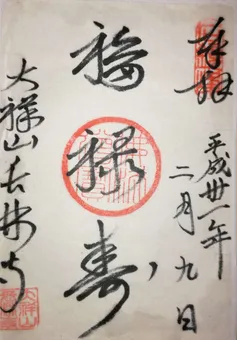 奉拝
平成卅一年
二月九日
福
禄
寿
大祥山長林寺